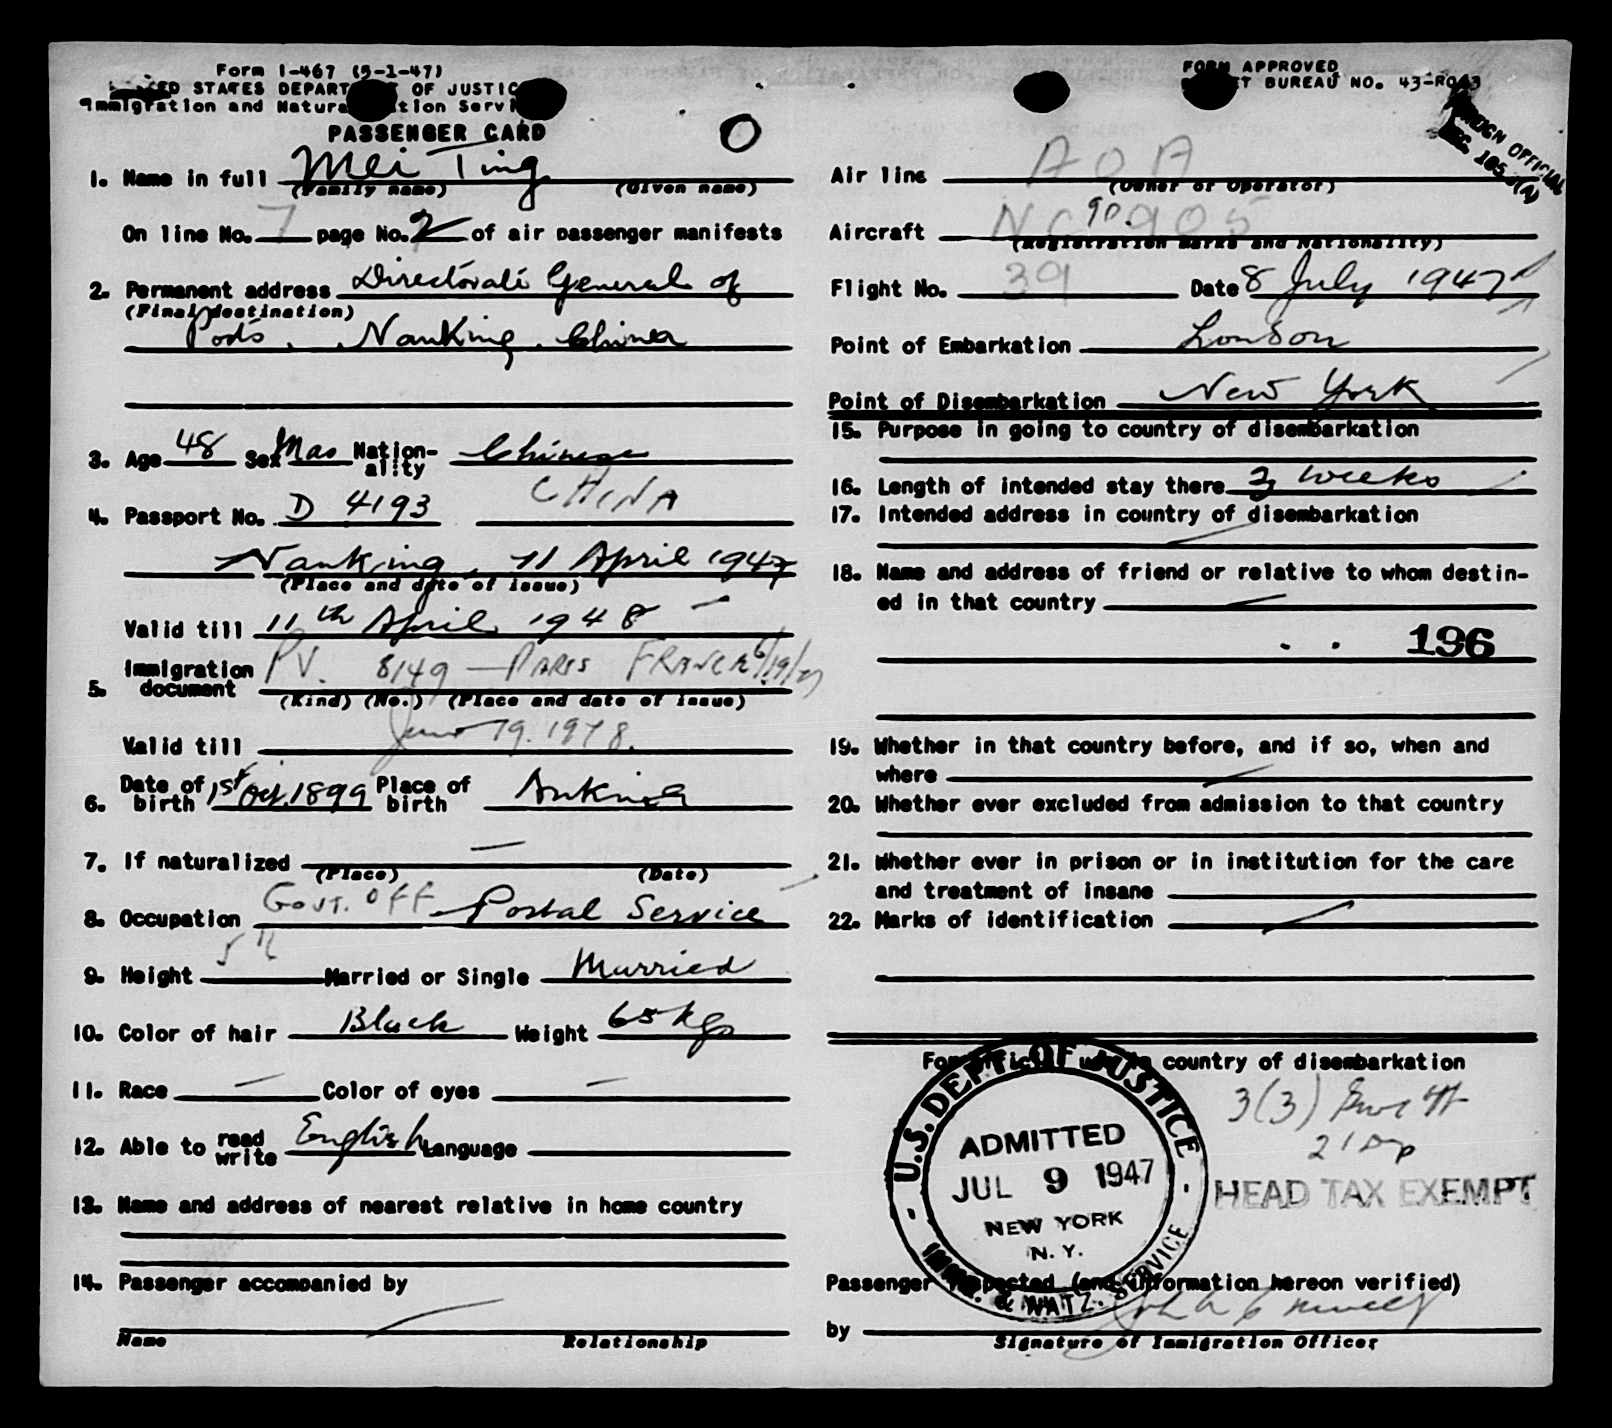 Form I-467 (5-1-47)
STATES DEPARTMENT OF JUSTICE
Immigration and Naturalization Service
PASSENGER CARD
1. Name in full Mei Ting
(Family name) (Given name)
On line No. 7 page No. 2 of air passenger manifests
2. Permanent address Directorate General of
(Final destination)
Posts, Nanking, China
3. Age 48 Sex Mas Nationality Chinese
CHINA
4. Passport No. D 4193
Nanking, 11 April 1947
(Place and date of issue)
Valid till 11th April 1948
5. Immigration document PV. 8149 — PARIS FRANCE 6/19/47
(Kind) (No.) (Place and date of issue)
Valid till June 19. 1948.
6. Date of birth 1st Oct. 1899 Place of birth Anking
7. If naturalized —
(Place) (Date)
8. Occupation GOVT. OFF Postal Service
9. Height 5 Married or Single Married
10. Color of hair Black Weight 65 kgs
11. Race — Color of eyes —
12. Able to read write English Language
13. Name and address of nearest relative in home country
14. Passenger accompanied by
Name Relationship
FORM APPROVED
BUREAU NO. 43-R043
FOREIGN OFFICIAL
SEC.
O
Air line AOA
(Owner or Operator)
Aircraft NC 90905
(Registration marks and Nationality)
Flight No. 39 Date 8 July 1947
Point of Embarkation London
Point of Disembarkation New York
15. Purpose in going to country of disembarkation
16. Length of intended stay there 3 weeks
17. Intended address in country of disembarkation
18. Name and address of friend or relative to whom destin-
ed in that country
196
19. Whether in that country before, and if so, when and
where
20. Whether ever excluded from admission to that country
21. Whether ever in prison or in institution for the care
and treatment of insane
22. Marks of identification
For official use in country of disembarkation
3(3)
HEAD TAX EXEMPT
U.S. DEPT. OF JUSTICE
ADMITTED
JUL 9 1947
NEW YORK
N. Y.
IMMIG. & NATZ. SERVICE
Passenger inspected (and information hereon verified)
by
Signature of Immigration Officer